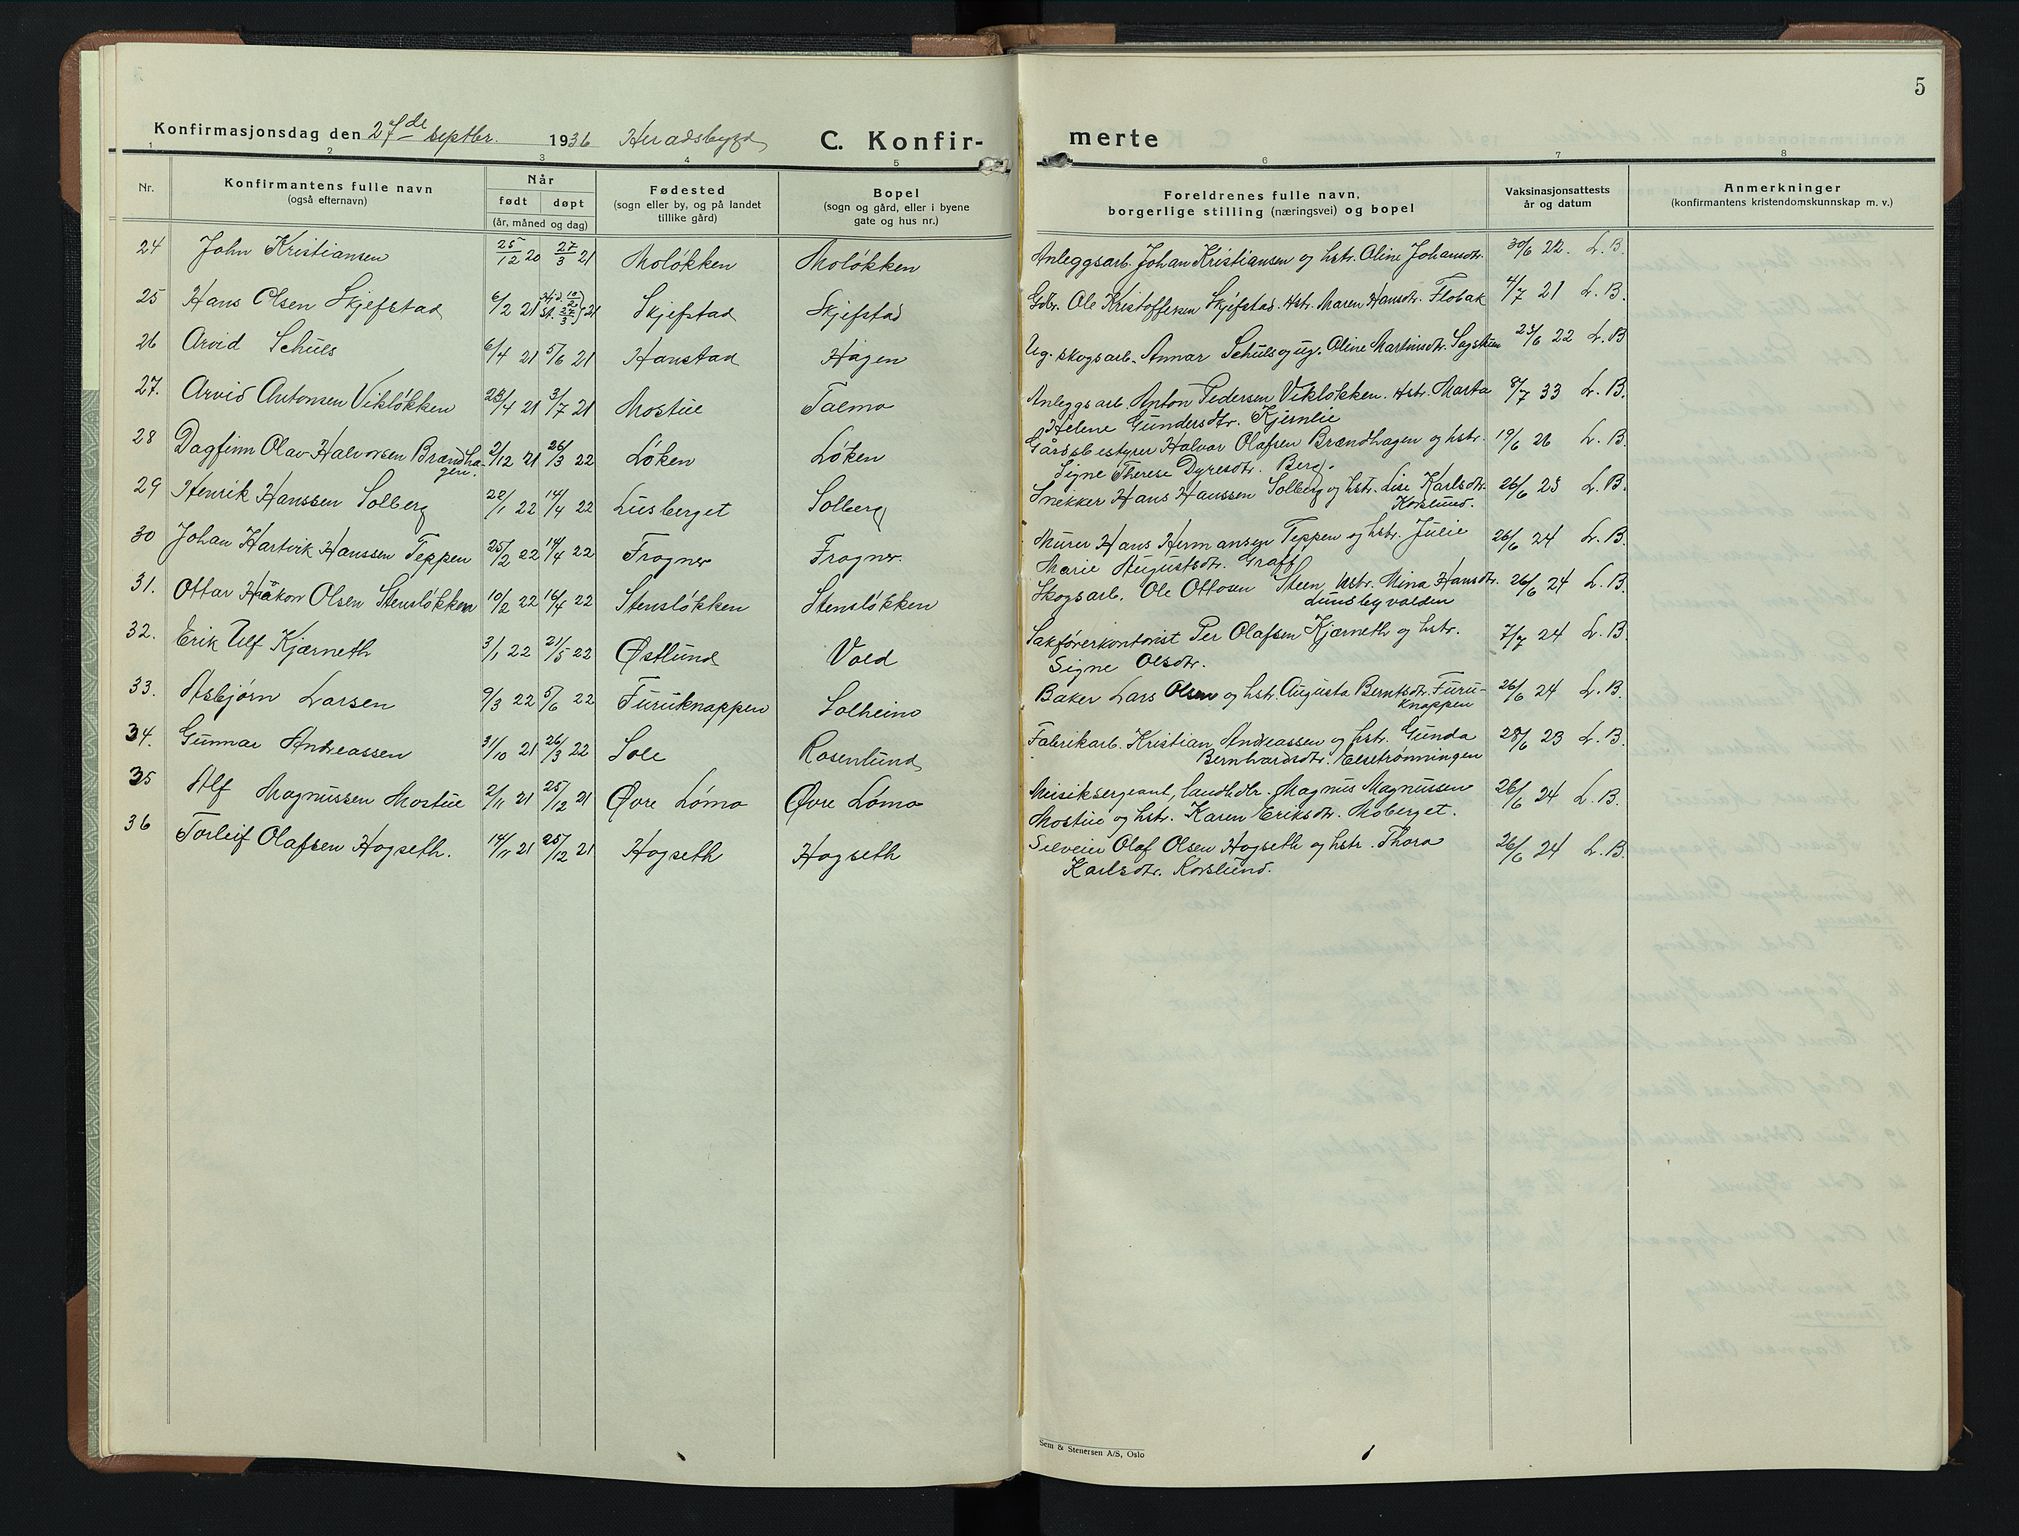 5
Konfirmasjonsdag den 27de septbr. 1936 Heradsbygd C. Konfir- merte
1 2 3 4 5 6 7 8
Nr. Konfirmantens fulle navn (også efternavn) Når født døpt (år, måned og dag) Fødested (sogn eller by, og på landet tillike gård) Bopel (sogn og gård, eller i byene gate og hus nr.) Foreldrenes fulle navn, borgerlige stilling (næringsvei) og bopel Vaksinasjonsattests år og datum Anmerkninger (konfirmantens kristendomskunnskap m. v.)
24 John Kristiansen 25/12 20 27/3 21 Moløkken Moløkken Anleggsarb. Johan Kristiansen og hstr. Oline Johansdtr. 30/6 22. L. B.
25 Hans Olsen Skjefstad 6/2 21 Hjd. 10/2 St. 27/3 21 Skjefstad Skjefstad Gdbr. Ole Kristoffersen Skjefstad. Hstr. Maren Hansdtr. Flobak 4/7 21 L. B.
26 Arvid Schuls 6/4 21 5/6 21 Hanstad Hagen Ug. skogsarb. Annar Schuls og ug. Oline Martinsdtr. Sagstuen 23/6 22 L. B
27. Arvid Antonsen Vikløkken 23/4 21 3/7 21 Mostue Talmo Anleggsarb. Anton Pedersen Vikløkken. Hstr. Marta 8/7 33 L. B.
Helene Gundersdtr. Kjernlie
28 Dagfinn Olav Halvorsen Brændha- 2/12 21 26/3 22 Løken Løken Gårdsbestyrer Halvar Olafsen Brændhagen og hstr. 19/6 26 L. B.
gen. Signe Therese Dyresdtr. Berg.
29 Henrik Hanssen Solberg 22/1 22 14/4 22 Lusberget Solberg Snekker Hans Hanssen Solberg og hstr. Lise Karlsdtr. 26/6 23 L. B.
Korslund.
30 Johan Hartvik Hanssen Teppen 25/2 22 14/4 22 Frogner Frogner. Murer Hans Hermansen Teppen og hstr. Julie 26/6 24 L. B.
Marie Augustsdtr. Graff
31. Ottar Håkon Olsen Stensløkken 10/2 22 16/4 22 Stensløkken Stensløkken Skogsarb. Ole Ottosen Steen, hstr. Mina Hansdtr. 26/6 24 L. B.
Lunsbyvolden
32. Erik Ulf Kjærneth 3/1 22 21/5 22 Østlund Vold Sakførerkontorist Per Olafsen Kjærneth og hstr. 7/7 24 L. B.
Signe Olsdtr.
33. Asbjørn Larsen 9/3 22 5/6 22 Furuknappen Solheim Baker Lars Olsen og hstr. Augusta Berntsdtr. Furu- 26/6 24 L. B.
knappen
34. Gunnar Andreassen 31/10 21 26/3 22 Sole Rosenlund Fabrikarb. Kristian Andreassen og hstr. Gunda 28/6 23 L. B.
Bernhardsdtr. Elsetrønningen
35 Alf Magnussen Mostue 2/11 21 25/12 21 Øvre Lømo Øvre Lømo Musiksergeant, landhdlr. Magnus Magnussen 26/6 24 L. B.
Mostue og hstr. Karen Eriksdtr. Moberget.
36 Torleif Olafsen Hogseth. 14/11 21 25/12 21 Hogseth Hogseth Olaf Olsen Hogseth og hstr. Thora 26/6 24 L. B.
Karlsdtr. Korslund.
Sem & Stenersen A/S, Oslo